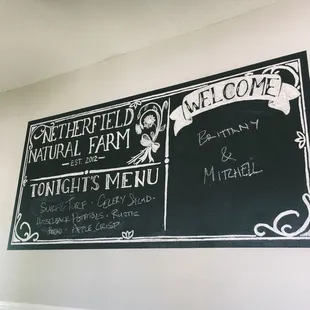 NETHERFIELD
NATURAL FARM
EST. 2012
TONIGHT'S MENU
SURF & TURF · CELERY SALAD ·
HASSELBACK POTATOES · RUSTIC
BREAD · APPLE CRISP
WELCOME
BRITTANY
&
MITCHELL